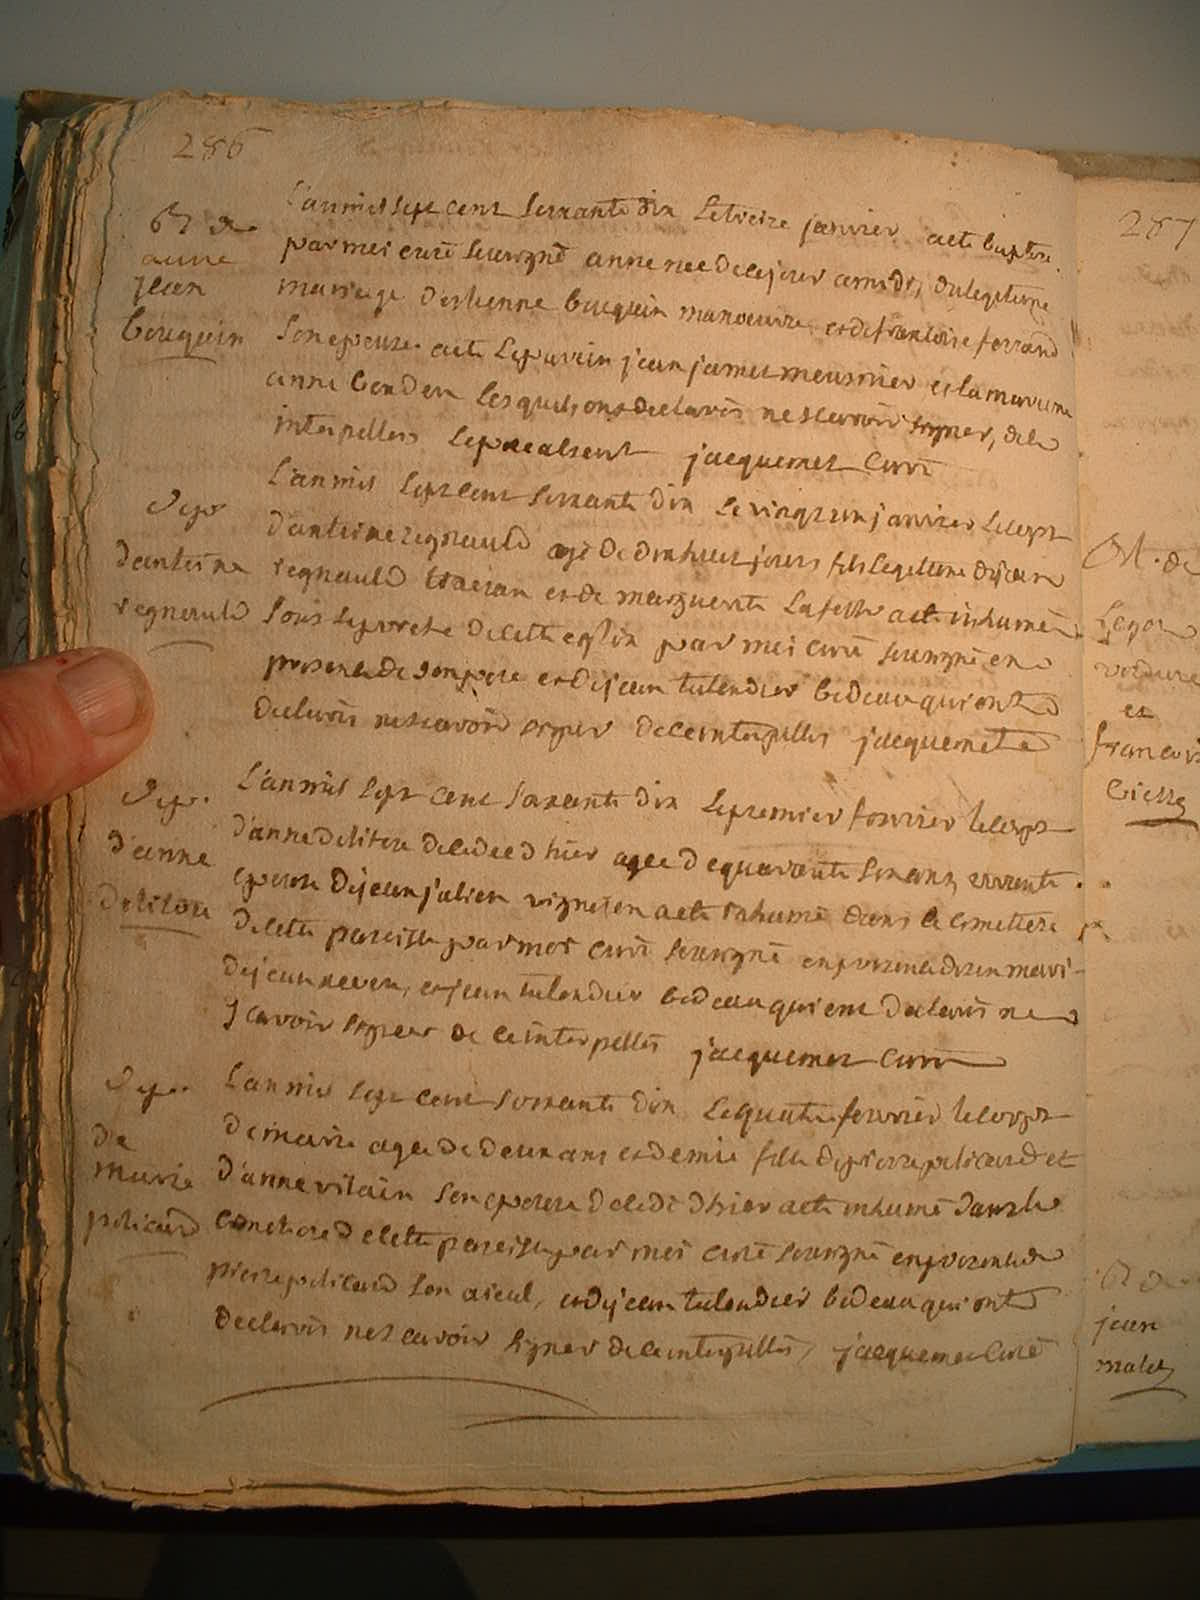 286
Bt de
anne
jean
bouquin
L'an mil sept cent soixante dix le treize janvier a ete baptisé
par moi curé soussigné anne née de ce jour a midi, du legitime
mariage d'estienne bouquin manoeuvre et de francoise ferrand
son epouse a ete le parain jean jamet meusnier et la maraine
anne lesquels ont declarés ne scavoir signer, de ce
interpellés jacquemet curé
Sep
d'antoine
regnauld
L'an mil sept cent soixante dix le vingt un janvier le corps
d'antoine regnauld agé de dix huit jours fils legitime de jean
regnauld et de marguerite a eté inhumé
sous le porche de cette eglise par moi curé soussigné en
presence de son pere et de jean talendier bedeau qui ont
declarés ne scavoir signer de ce interpellés jacquemet c
Sep.
d'anne
L'an mil sept cent soixante dix le premier fevrier le corps
d'anne decedee d'hier agee de quarante six ans, vivante
epouse de jean julien vigneron a eté inhumé dans le cimetiere
de cette paroisse par moi curé soussigné en presence de son mari
de jean neveu, et jean talendier bedeau qui ont declarés ne
scavoir signer de ce interpellés jacquemet curé
Sep.
de
marie
policard
L'an mil sept cent soixante dix le quatre fevrier le corps
de marie agee de deux ans et demie fille de pierre policard et
d'anne vilain son epouse decedé d'hier a eté inhumé dans le
cimetiere de cette paroisse par moi curé soussigné en presence de
pierre policard son aieul, et de jean talendier bedeau qui ont
declarés ne scavoir signer de ce interpellés, jacquemet curé
287
M. de
et
francois
Bt de
jean
malet